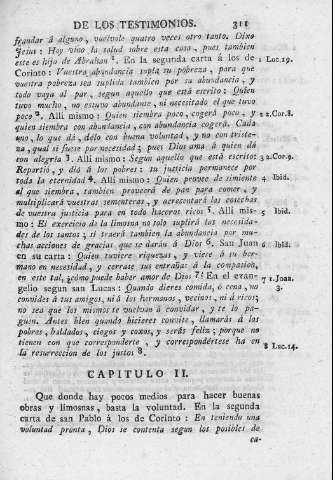 DE LOS TESTIMONIOS. 311
fraudar á alguno, vuélvole quatro veces otro tanto. Dixo
Jesus: Hoy vino la salud á esta casa, pues tambien
este es hijo de Abrahan 1. En la segunda carta á los de 1 Luc.19.
Corinto: Vuestra abundancia supla su pobreza, para que
vuestra pobreza sea suplida tambien por su abundancia, y
todo vaya al par, segun aquello que está escrito: Quien
tuvo mucho, no estuvo abundante, ni necesitado el que tuvo
poco 2. Allí mismo: Quien siembra poco, cogerá poco, y 2 2.Cor.8.
quien siembra con abundancia, con abundancia cogerá. Cada
uno, lo que dá, délo con buena voluntad, y no con triste-
za, qual si fuese por necesidad; pues Dios ama á quien dá
con alegria 3. Allí mismo: Segun aquello que está escrito: 3 2.Cor.9.
Repartió, y dió á los pobres: su justicia permanece por
toda la eternidad 4. Allí mismo: Quien provee de simiente 4 Ibid.
al que siembra, tambien proveerá de pan para comer, y
multiplicará vuestras sementeras, y acrecentará las cosechas
de vuestra justicia para en todo haceros ricos 5. Allí mis- 5 Ibid.
mo: El exercicio de la limosna no solo suplirá las necesida-
des de los santos, si traerá tambien la abundancia por mu-
chas acciones de gracias que se darán á Dios 6. San Juan 6 Ibid.
en su carta: Quien tuviere riquezas, y viere á su her-
mano en necesidad, y cerrase sus entrañas á la compasion,
en este tal, ¿cómo puede haber amor de Dios 7? En el evan- 7 1.Joan.
gelio segun san Lucas: Quando dieres comida, ó cena, no 3.
convides á tus amigos, ni á los hermanos, vecinos, ni á ricos;
no sea que los mismos te vuelvan á convidar, y te lo pa-
guen. Antes bien quando hicieres convite, llamarás á los
pobres, baldados, ciegos y coxos, y serás feliz; porque no
tienen con que corresponderte, y correspondértese ha en
la resurreccion de los justos 8. 8 Luc.14.
CAPITULO II.
Que donde hay pocos medios para hacer buenas
obras y limosnas, basta la voluntad. En la segunda
carta de san Pablo á los de Corinto: En teniendo una
voluntad pronta, Dios se contenta segun los posibles de
ca-